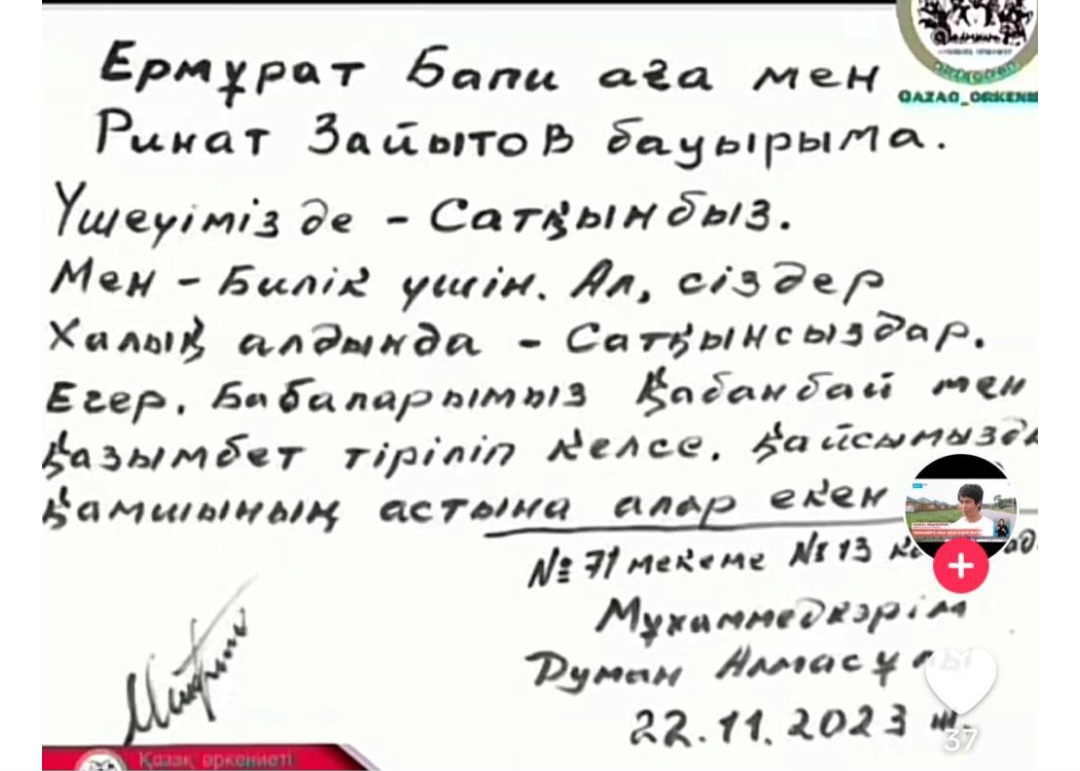 QAZAQ_ORKENI
Ермұрат Бапи аға мен
Ринат Зайытов бауырыма.
Үшеуіміз де - Сатқынбыз.
Мен - Билік үшін. Ал, сіздер
Халық алдында - Сатқынсыздар.
Егер, Бабаларымыз Қабанбай мен
Қазымбет тіріліп келсе, қайсымызды
қамшының астына алар екен
№ 71 мекеме № 13
Мұхаммедкәрім
Думан Алмасұлы
22.11.2023 ж.
37
Қазақ өркениеті